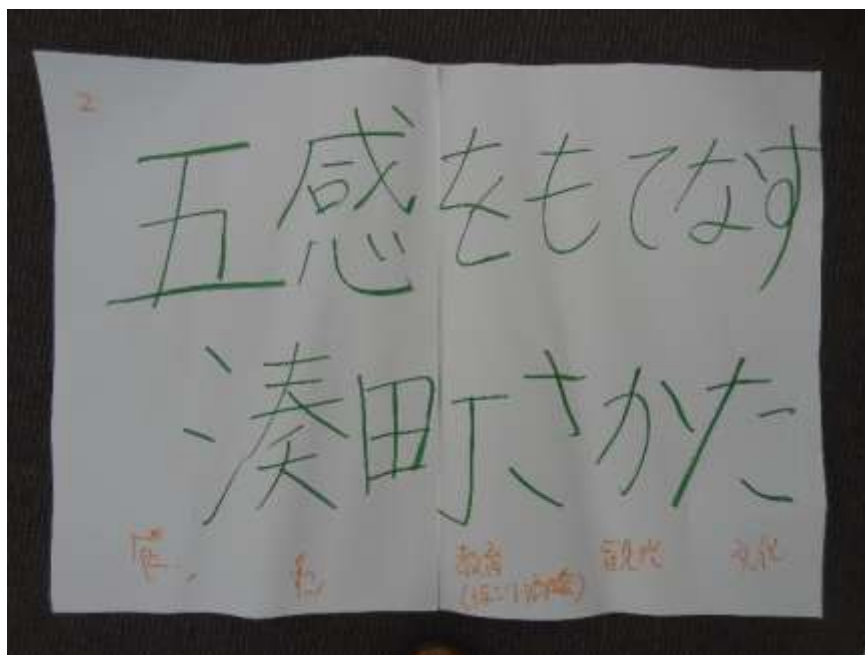 2
五感をもてなす
湊町さかた
教育 観光 文化